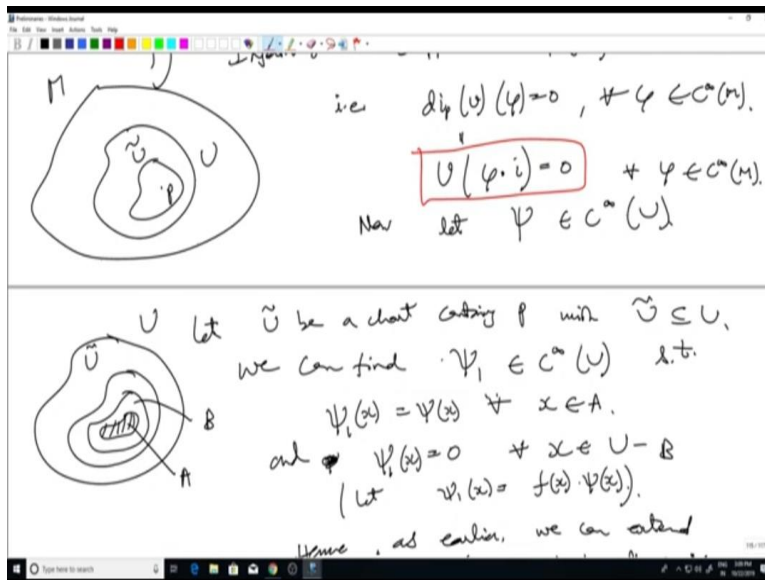 Preliminaries - Windows Journal
File Edit View Insert Actions Tools Help
M
Ũ U
p
i.e. di_p (v) (φ) = 0 , ∀ φ ∈ C^∞(M).
v(φ∘i) = 0 ∀ φ ∈ C^∞(M).
Now let Ψ ∈ C^∞(U)
U Let Ũ be a chart containing p with Ũ ⊆ U,
Ũ
we can find Ψ₁ ∈ C^∞(U) s.t.
Ψ₁(x) = Ψ(x) ∀ x ∈ A.
B
and Ψ₁(x) = 0 ∀ x ∈ U - B
A
(Let Ψ₁(x) = f(x)·Ψ(x)).
Hence, as earlier, we can extend
Type here to search